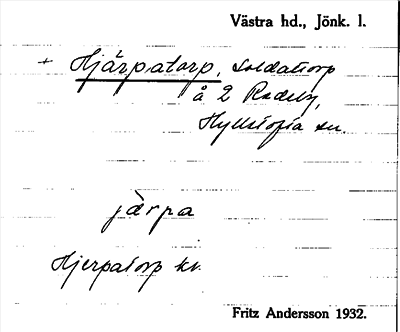 Västra hd., Jönk. l.
+ Hjärpatorp, soldattorp
å 2 Rödeby,
Hyllstofta sn.
järpa
Hjerpatorp kv.
Fritz Andersson 1932.